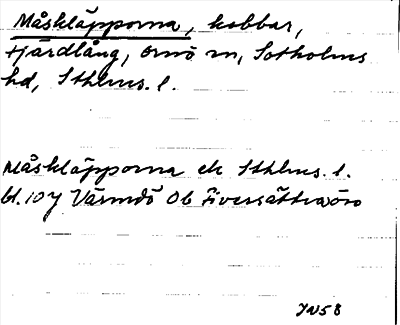 Måskläpporna, kobbar,
Fjärdlång, Ornö sn, Sotholms
hd, Sthlms. l.
Måskläpporna ek Sthlms. l.
bl. 107 Värmdö Ob
JN58